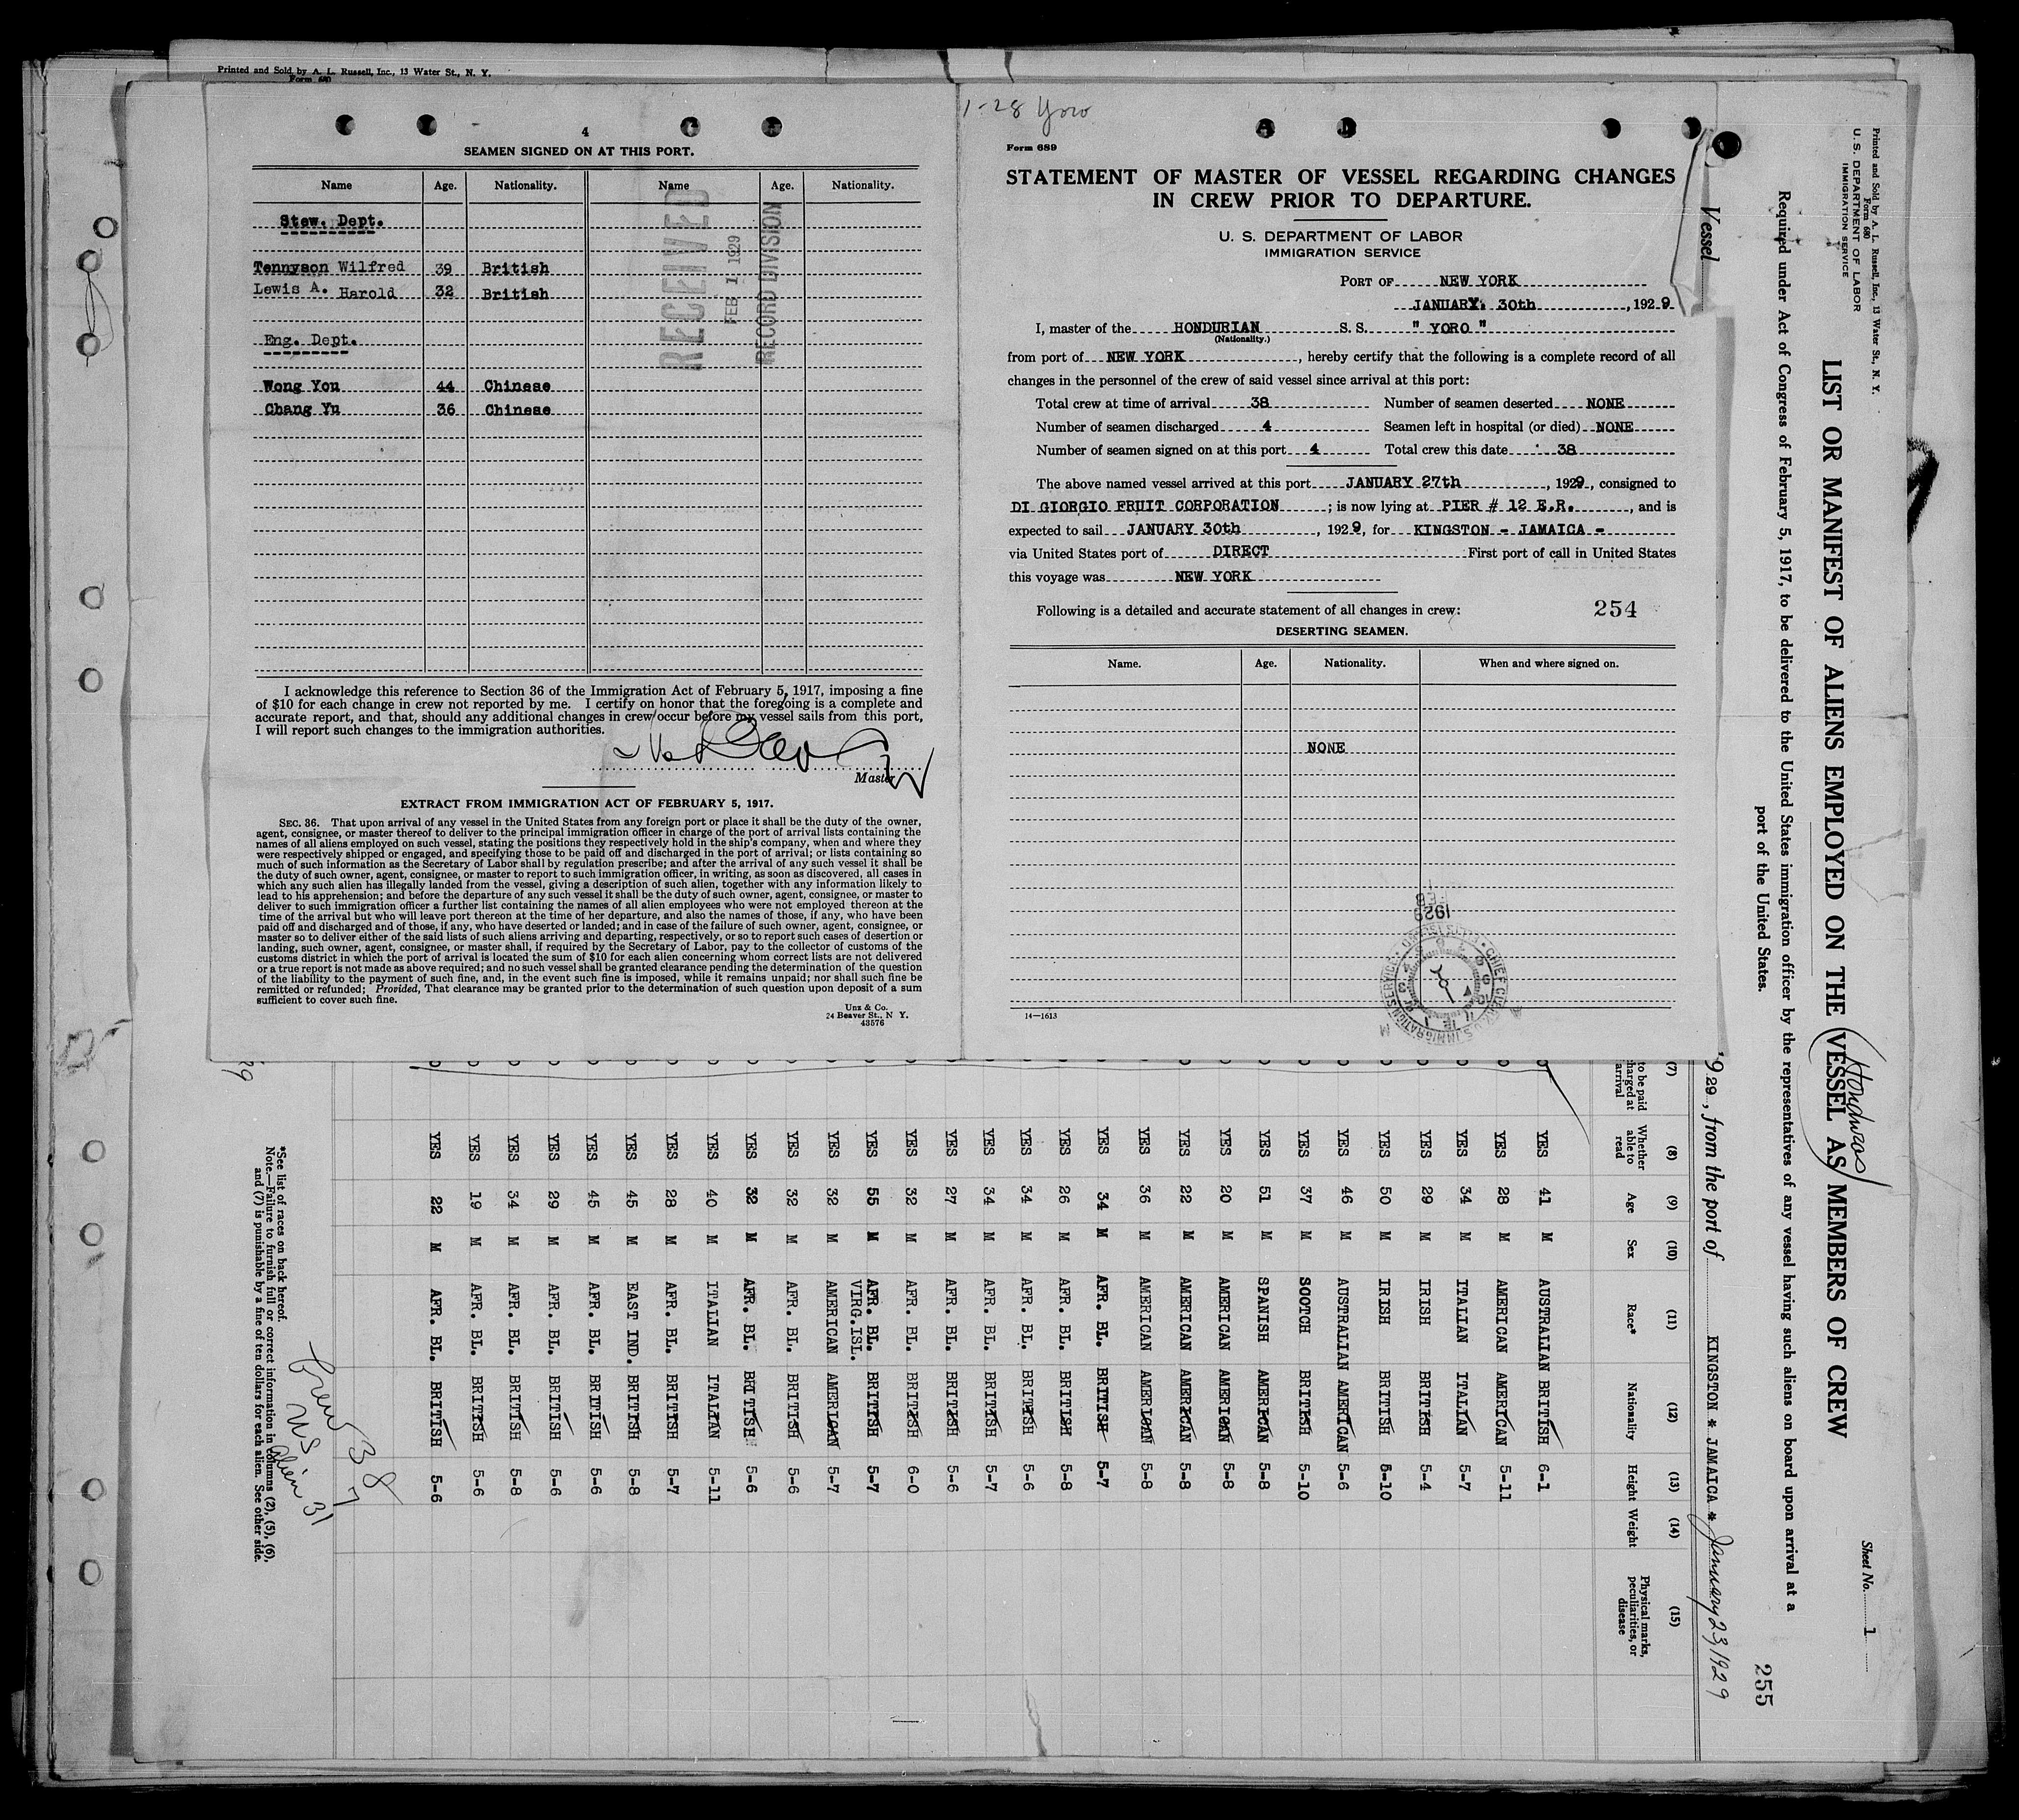 Printed and Sold by A. L. Russell, Inc., 13 Water St., N. Y.
Form 680
4
SEAMEN SIGNED ON AT THIS PORT.
Name Age. Nationality. Name Age. Nationality.
Stew. Dept.
Tennyson Wilfred 39 British
Lewis A. Harold 32 British
Eng. Dept.
Wong You 44 Chinese
Chang Yu 36 Chinese
RECEIVED
FEB 1 1929
RECORD DIVISION
I acknowledge this reference to Section 36 of the Immigration Act of February 5, 1917, imposing a fine
of $10 for each change in crew not reported by me. I certify on honor that the foregoing is a complete and
accurate report, and that, should any additional changes in crew occur before my vessel sails from this port,
I will report such changes to the immigration authorities.
Master
EXTRACT FROM IMMIGRATION ACT OF FEBRUARY 5, 1917.
SEC. 36. That upon arrival of any vessel in the United States from any foreign port or place it shall be the duty of the owner,
agent, consignee, or master thereof to deliver to the principal immigration officer in charge of the port of arrival lists containing the
names of all aliens employed on such vessel, stating the positions they respectively hold in the ship's company, when and where they
were respectively shipped or engaged, and specifying those to be paid off and discharged in the port of arrival; or lists containing so
much of such information as the Secretary of Labor shall by regulation prescribe; and after the arrival of any such vessel it shall be
the duty of such owner, agent, consignee, or master to report to such immigration officer, in writing, as soon as discovered, all cases in
which any such alien has illegally landed from the vessel, giving a description of such alien, together with any information likely to
lead to his apprehension; and before the departure of any such vessel it shall be the duty of such owner, agent, consignee, or master to
deliver to such immigration officer a further list containing the names of all alien employees who were not employed thereon at the
time of the arrival but who will leave port thereon at the time of her departure, and also the names of those, if any, who have been
paid off and discharged and of those, if any, who have deserted or landed; and in case of the failure of such owner, agent, consignee, or
master so to deliver either of the said lists of such aliens arriving and departing, respectively, or so to report such cases of desertion or
landing, such owner, agent, consignee, or master shall, if required by the Secretary of Labor, pay to the collector of customs of the
customs district in which the port of arrival is located the sum of $10 for each alien concerning whom correct lists are not delivered
or a true report is not made as above required; and no such vessel shall be granted clearance pending the determination of the question
of the liability to the payment of such fine, and, in the event such fine is imposed, while it remains unpaid; nor shall such fine be
remitted or refunded; Provided, That clearance may be granted prior to the determination of such question upon deposit of a sum
sufficient to cover such fine.
Unz & Co.
24 Beaver St., N Y.
43576
1-28 Yoro
Form 689
STATEMENT OF MASTER OF VESSEL REGARDING CHANGES
IN CREW PRIOR TO DEPARTURE.
U. S. DEPARTMENT OF LABOR
IMMIGRATION SERVICE
PORT OF NEW YORK
JANUARY. 30th, 1929
I, master of the HONDURIAN S. S. " YORO "
(Nationality.)
from port of NEW YORK, hereby certify that the following is a complete record of all
changes in the personnel of the crew of said vessel since arrival at this port:
Total crew at time of arrival 38 Number of seamen deserted NONE
Number of seamen discharged 4 Seamen left in hospital (or died) NONE
Number of seamen signed on at this port 4 Total crew this date 38
The above named vessel arrived at this port JANUARY 27th, 1929, consigned to
DI GIORGIO FRUIT CORPORATION; is now lying at PIER # 12 E.R., and is
expected to sail JANUARY 30th, 1929, for KINGSTON - JAMAICA -
via United States port of DIRECT First port of call in United States
this voyage was NEW YORK
Following is a detailed and accurate statement of all changes in crew:
254
DESERTING SEAMEN.
Name. Age. Nationality. When and where signed on.
NONE
14—1613
Printed and Sold by A. L. Russell, Inc., 13 Water St., N. Y.
Form 680
U. S. DEPARTMENT OF LABOR
IMMIGRATION SERVICE
LIST OR MANIFEST OF ALIENS EMPLOYED ON THE VESSEL AS MEMBERS OF CREW
Honduras
Sheet No. 1
Required under Act of Congress of February 5, 1917, to be delivered to the United States immigration officer by the representatives of any vessel having such aliens on board upon arrival at a
port of the United States.
255
Vessel
29, from the port of KINGSTON * JAMAICA * January 23, 1929
(7) (8) (9) (10) (11) (12) (13) (14) (15)
to be paid
arrival
Whether able to read Age Sex Race* Nationality Height Weight Physical marks, peculiarities, or disease
YES 41 M AUSTRALIAN BRITISH 6-1
YES 28 M AMERICAN AMERICAN 5-11
YES 34 M ITALIAN ITALIAN 5-7
YES 29 M IRISH BRITISH 5-4
YES 50 M IRISH BRITISH 5-10
YES 46 M AUSTRALIAN AMERICAN 5-6
YES 37 M SCOTCH BRITISH 5-10
YES 51 M SPANISH AMERICAN 5-8
YES 20 M AMERICAN AMERICAN 5-8
YES 22 M AMERICAN AMERICAN 5-8
YES 36 M AMERICAN AMERICAN 5-8
YES 34 M AFR. BL. BRITISH 5-7
YES 26 M AFR. BL. BRITISH 5-8
YES 34 M AFR. BL. BRITISH 5-6
YES 34 M AFR. BL. BRITISH 5-7
YES 27 M AFR. BL. BRITISH 5-6
YES 32 M AFR. BL. BRITISH 6-0
YES 55 M AFR. BL. BRITISH 5-7
VIRG.ISL.
YES 32 M AMERICAN AMERICAN 5-7
YES 32 M AFR. BL. BRITISH 5-6
YES 32 M AFR. BL. BRITISH 5-6
YES 40 M ITALIAN ITALIAN 5-11
YES 28 M AFR. BL. BRITISH 5-7
YES 45 M EAST IND. BRITISH 5-8
YES 45 M AFR. BL. BRITISH 5-6
YES 29 M AFR. BL. BRITISH 5-6
YES 34 M AFR. BL. BRITISH 5-8
YES 19 M AFR. BL. BRITISH 5-6
YES 22 M AFR. BL. BRITISH 5-6
*See list of races on back hereof.
Note.—Failure to furnish full or correct information in columns (2), (5), (6),
and (7) is punishable by a fine of ten dollars for each alien. See other side.
Crew 38
US 7
Alien 31